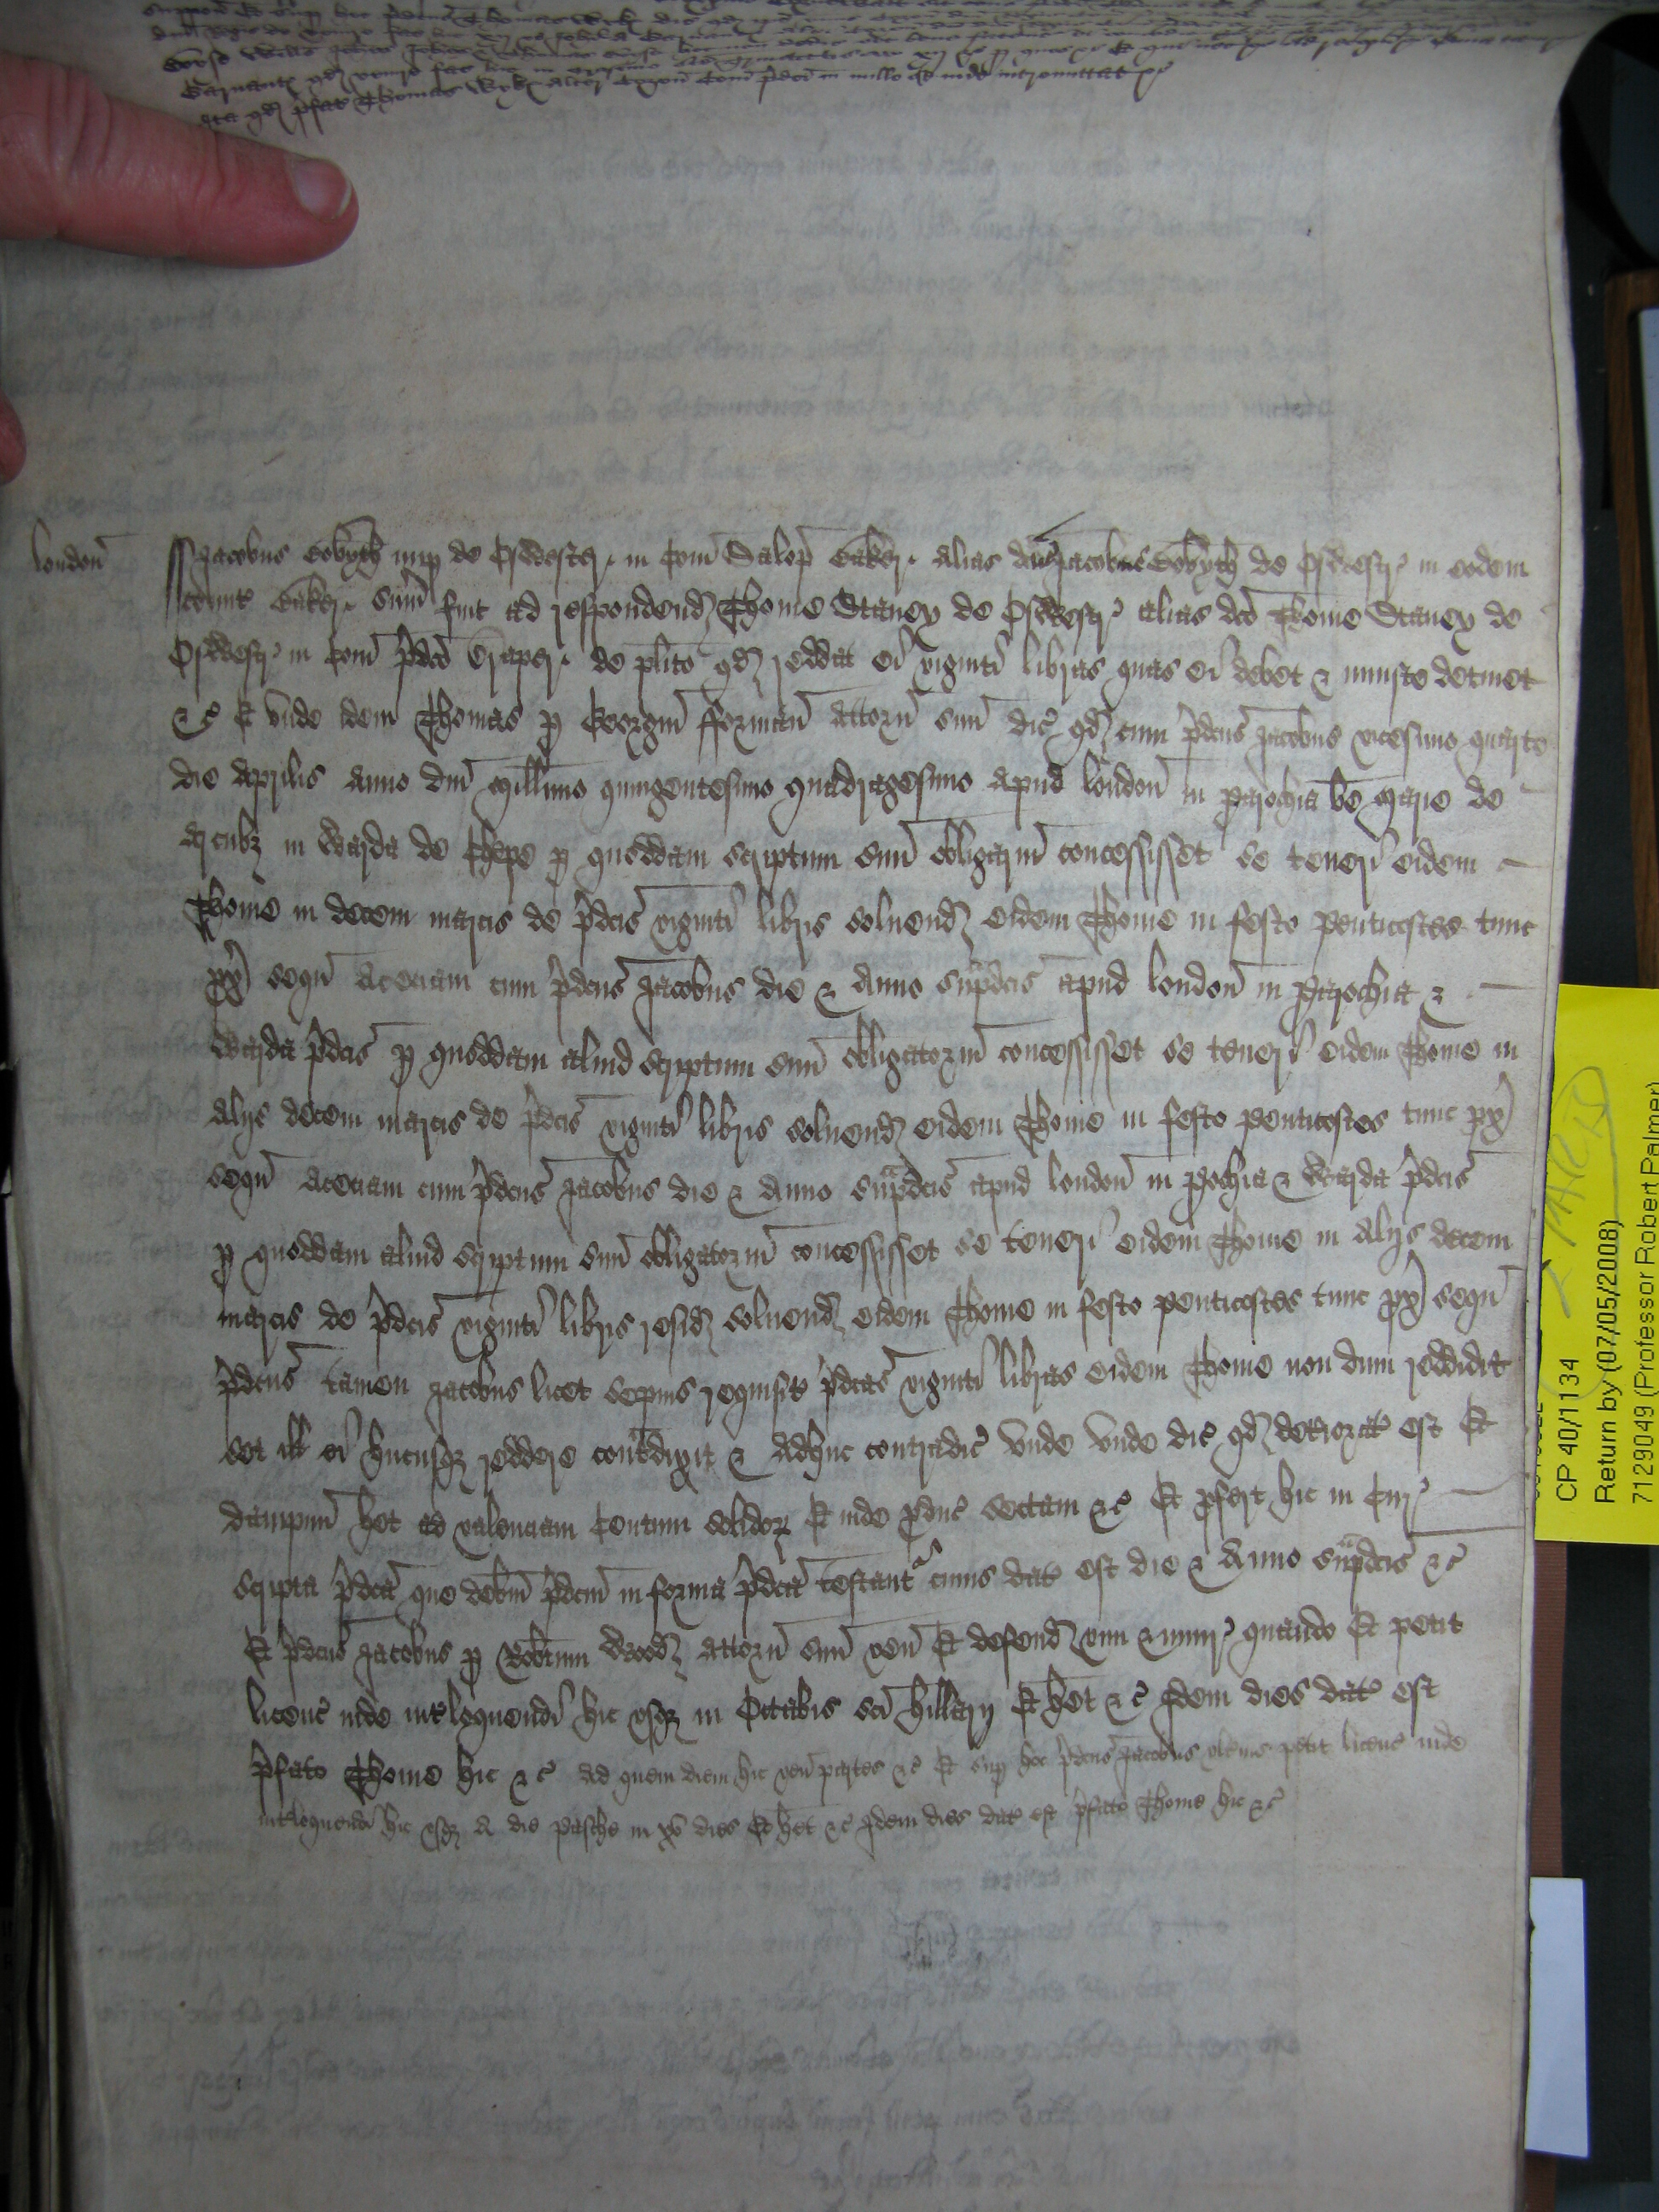 london̄ Jacobus Eobyth nup de Osewestr in Com̄ Salop̄ Baker alias dcūs Jacobus Eobyth de Osewestr in eodem
Comit̄ Baker sum̄ fuit ad respondend Thome Staney de Osewestr alias dcō Thome Staney de
Osewestr in Com̄ p̄dcō Draper de plīto qd reddat ei viginti libras quas ei debet & iniuste detinet
&c Et vnde idem Thomas p Georgiū fforman attorn̄ suū dic̄ qd cum p̄dcūs Jacobus vicesimo quarto
die Aprilis anno dnī Millīmo quingentesimo quadragesimo apud london̄ in parochia bē Marie de
Arcubȝ in warda de Chepe p quoddam scriptum suū obligariū concessisset se teneri eidem
Thome in decem marcis de p̄dcīs viginti libris soluend eidem Thome in festo Penticostes tunc
px̄ seqū Aceciam cum p̄dcūs Jacobus die & Anno sup̄dcīs apud london̄ in parochia &
Warda p̄dcīs p quoddam aliud scriptum suū obligatoriū concessisset se teneri eidem Thome in
alijs decem marcis de p̄dcīs viginti libris soluend eidem Thome in festo penticostes tunc px̄
seqū Aceciam cum p̄dcūs Jacobus die & Anno sup̄dcīs apud london̄ in pochia & Warda p̄dcīs
p quoddam aliud scriptum suū obligatoriū concessisset se teneri eidem Thome in alijs decem
marcis de p̄dcīs viginti libris resid soluend eidem Thome in festo penticostes tunc px̄ seqū
p̄dcūs tamen Jacobus licet sepius requisit̄ p̄dcās viginti libras eidem Thome non dum reddidit
set ill ei hucusqȝ reddere cont̄dixit & Adhuc contradic̄ vnde vnde dic̄ qd deteriorat̄ est Et
dampnū het ad valenciam Centum solidoꝝ Et inde pduc̄ sectam &c Et pfert hic in Cur̄
scripta p̄dcā que debm̄ p̄dcm̄ in forma p̄dcā testant̄ cuius dat̄ est die & Anno sup̄dcīs &c
Et p̄dcūs Jacobus p Robtum Wood attorn̄ suū ven̄ Et defend vim & iniur̄ quando Et petit
licenc̄ inde int̄loquendi hic vsqȝ in Octabis scī hillarij Et het &c Idem dies dat̄ est
p̄fato Thome hic &c Ad quem diem hic ven̄ partes &c Et sup hoc p̄dcūs Jacobus vlterius petit licenc̄ inde
int̄loquendi hic vsqȝ A die Pasche in xv dies Et het &c Idem dies dat̄ est p̄fato Thome hic &c
CP 40/1134
Return by (07/05/2008)
7129049 (Professor Robert Palmer)